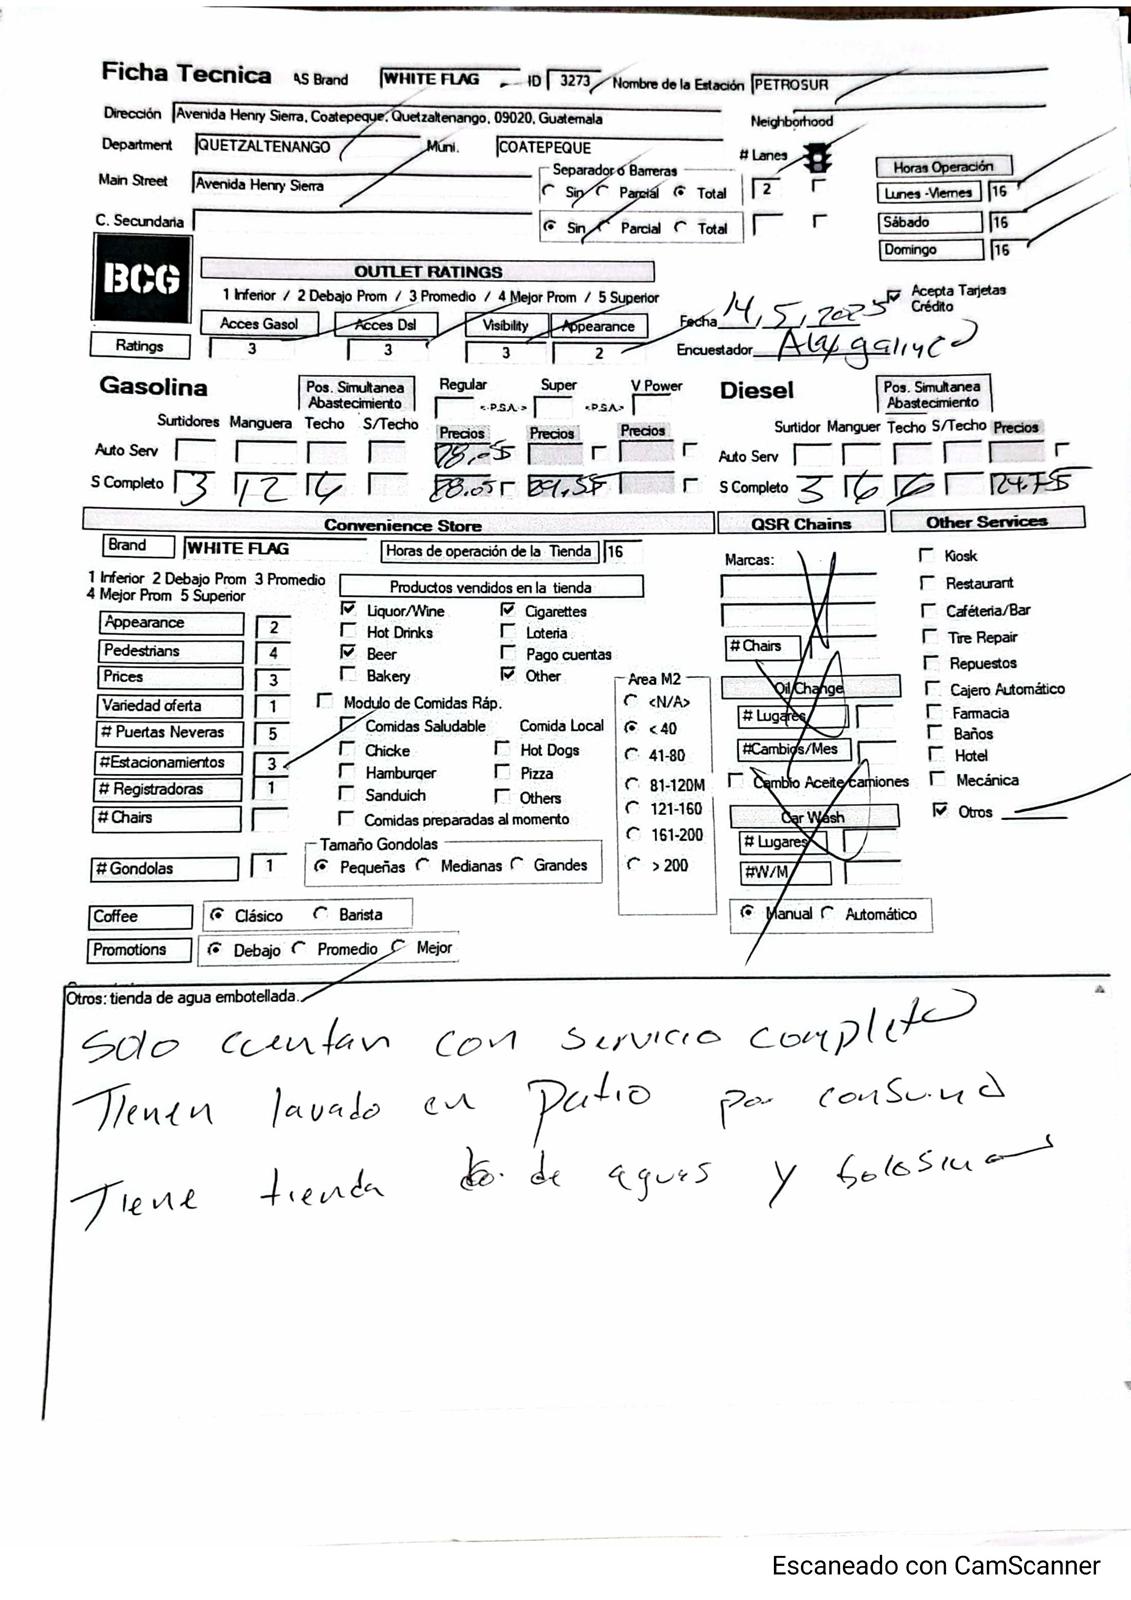 Ficha Tecnica AS Brand WHITE FLAG ID 3273 Nombre de la Estación PETROSUR
Dirección Avenida Henry Sierra, Coatepeque, Quetzaltenango, 09020, Guatemala Neighborhood
Department QUETZALTENANGO Muni. COATEPEQUE # Lanes
Separador ó Barreras Horas Operación
Main Street Avenida Henry Sierra Sin Parcial Total 2 Lunes -Viernes 16
C. Secundaria Sin Parcial Total Sábado 16
Domingo 16
BCG
OUTLET RATINGS
1 Inferior / 2 Debajo Prom / 3 Promedio / 4 Mejor Prom / 5 Superior
Acepta Tarjetas
Crédito
Acces Gasol Acces Dsl Visibility Appearance Fecha 14, 5, 2025
Ratings 3 3 3 2 Encuestador
Gasolina Pos. Simultanea Abastecimiento Regular Super V Power Diesel Pos. Simultanea Abastecimiento
<-P.S.A.-> <-P.S.A.->
Surtidores Manguera Techo S/Techo Precios Precios Precios Surtidor Manguer Techo S/Techo Precios
Auto Serv 28.05 Auto Serv
S Completo 3 12 6 28.05 29.55 S Completo 3 6 6 24.75
Convenience Store QSR Chains Other Services
Brand WHITE FLAG Horas de operación de la Tienda 16 Marcas: Kiosk
1 Inferior 2 Debajo Prom 3 Promedio
4 Mejor Prom 5 Superior
Productos vendidos en la tienda Restaurant
Appearance 2 Liquor/Wine Cigarettes Caféteria/Bar
Hot Drinks Loteria Tire Repair
Pedestrians 4 Beer Pago cuentas # Chairs Repuestos
Prices 3 Bakery Other Area M2 Oil Change Cajero Automático
Variedad oferta 1 Modulo de Comidas Ráp. <N/A> # Lugares Farmacia
# Puertas Neveras 5 Comidas Saludable Comida Local < 40 Baños
#Estacionamientos 3 Chicke Hot Dogs 41-80 #Cambios/Mes Hotel
# Registradoras 1 Hamburger Pizza 81-120M Cambio Aceite camiones Mecánica
# Chairs Sanduich Others 121-160 Car Wash Otros
Comidas preparadas al momento 161-200 # Lugares
Tamaño Gondolas
# Gondolas 1 Pequeñas Medianas Grandes > 200 #W/M
Coffee Clásico Barista Manual Automático
Promotions Debajo Promedio Mejor
Otros: tienda de agua embotellada.
Solo cuentan con servicio completo
Tienen lavado en patio por consumo
Tiene tienda de aguas y golosinas
Escaneado con CamScanner